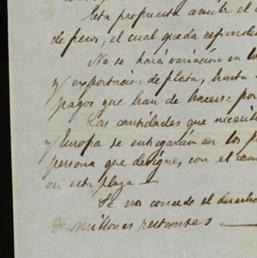 esta propuesta ante el
de pesos, el cual queda refundi
No se hará variación en lo
y exportación de plata, hasta
pagos que han de hacerse por
Las cantidades que necesit
y Europa se entregarán en los p
persona que designe, con el cam
en esta plaza
Se nos concede el derecho
de millones restantes